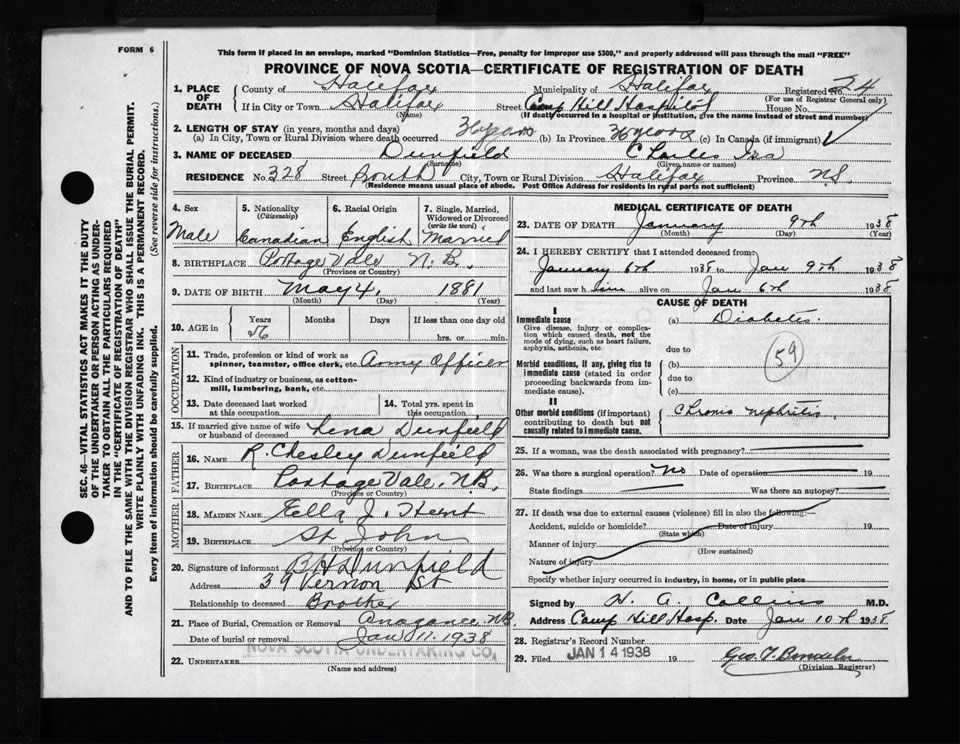 FORM 6
This form if placed in an envelope, marked "Dominion Statistics—Free, penalty for improper use $300," and properly addressed will pass through the mail "FREE"
PROVINCE OF NOVA SCOTIA—CERTIFICATE OF REGISTRATION OF DEATH
SEC. 46—VITAL STATISTICS ACT MAKES IT THE DUTY
OF THE UNDERTAKER OR PERSON ACTING AS UNDER-
TAKER TO OBTAIN ALL THE PARTICULARS REQUIRED
IN THE "CERTIFICATE OF REGISTRATION OF DEATH"
AND TO FILE THE SAME WITH THE DIVISION REGISTRAR WHO SHALL ISSUE THE BURIAL PERMIT.
WRITE PLAINLY WITH UNFADING INK. THIS IS A PERMANENT RECORD.
Every item of information should be carefully supplied. (See reverse side for instructions.)
1. PLACE OF DEATH
County of Halifax Municipality of Halifax Registered No. 24
(For use of Registrar General only)
If in City or Town Halifax Street Camp Hill Hospital House No.
(Name) (If death occurred in a hospital or institution, give the name instead of street and number)
2. LENGTH OF STAY (in years, months and days)
(a) In City, Town or Rural Division where death occurred 36 years (b) In Province 36 years (c) In Canada (if immigrant)
3. NAME OF DECEASED Dunfield Charles Ira
(Surname) (Given name or names)
RESIDENCE No. 328 Street South City, Town or Rural Division Halifax Province N.S.
(Residence means usual place of abode. Post Office Address for residents in rural parts not sufficient)
4. Sex Male
5. Nationality (Citizenship) Canadian
6. Racial Origin English
7. Single, Married, Widowed or Divorced (write the word) Married
8. BIRTHPLACE Portage Vale N.B.
(Province or Country)
9. DATE OF BIRTH May 4, 1881
(Month) (Day) (Year)
10. AGE in Years 56 Months Days If less than one day old
hrs. or min.
OCCUPATION
11. Trade, profession or kind of work as spinner, teamster, office clerk, etc. Army Officer
12. Kind of industry or business, as cotton-mill, lumbering, bank, etc.
13. Date deceased last worked at this occupation
14. Total yrs. spent in this occupation
15. If married give name of wife or husband of deceased Lena Dunfield
FATHER
16. NAME R. Chesley Dunfield
17. BIRTHPLACE Portage Vale, N.B.
(Province or Country)
MOTHER
18. MAIDEN NAME Ella J. Hunt
19. BIRTHPLACE St John
(Province or Country)
20. Signature of informant B H Dunfield
Address 39 Vernon St
Relationship to deceased Brother
21. Place of Burial, Cremation or Removal Anagance, N.B.
Date of burial or removal Jan 11. 1938
22. UNDERTAKER NOVA SCOTIA UNDERTAKING CO.
(Name and address)
MEDICAL CERTIFICATE OF DEATH
23. DATE OF DEATH January 9th 1938
(Month) (Day) (Year)
24. I HEREBY CERTIFY that I attended deceased from:
January 6th 1938 to Jan 9th 1938
and last saw him alive on Jan 6th 1938
CAUSE OF DEATH
I
Immediate cause (a) Diabetes.
Give disease, injury or complication which caused death, not the mode of dying, such as heart failure, asphyxia, asthenia, etc.
due to
59
Morbid conditions, if any, giving rise to immediate cause (stated in order proceeding backwards from immediate cause).
(b)
due to
(c)
II
Other morbid conditions (if important) contributing to death but not causally related to immediate cause.
Chronic nephritis
25. If a woman, was the death associated with pregnancy?
26. Was there a surgical operation? No Date of operation 19
State findings Was there an autopsy?
27. If death was due to external causes (violence) fill in also the following:—
Accident, suicide or homicide? Date of injury 19
(State which)
Manner of injury
(How sustained)
Nature of injury
Specify whether injury occurred in industry, in home, or in public place
Signed by H. A. Collins M.D.
Address Camp Hill Hosp. Date Jan 10th 1938
28. Registrar's Record Number
29. Filed JAN 14 1938 19
(Division Registrar)